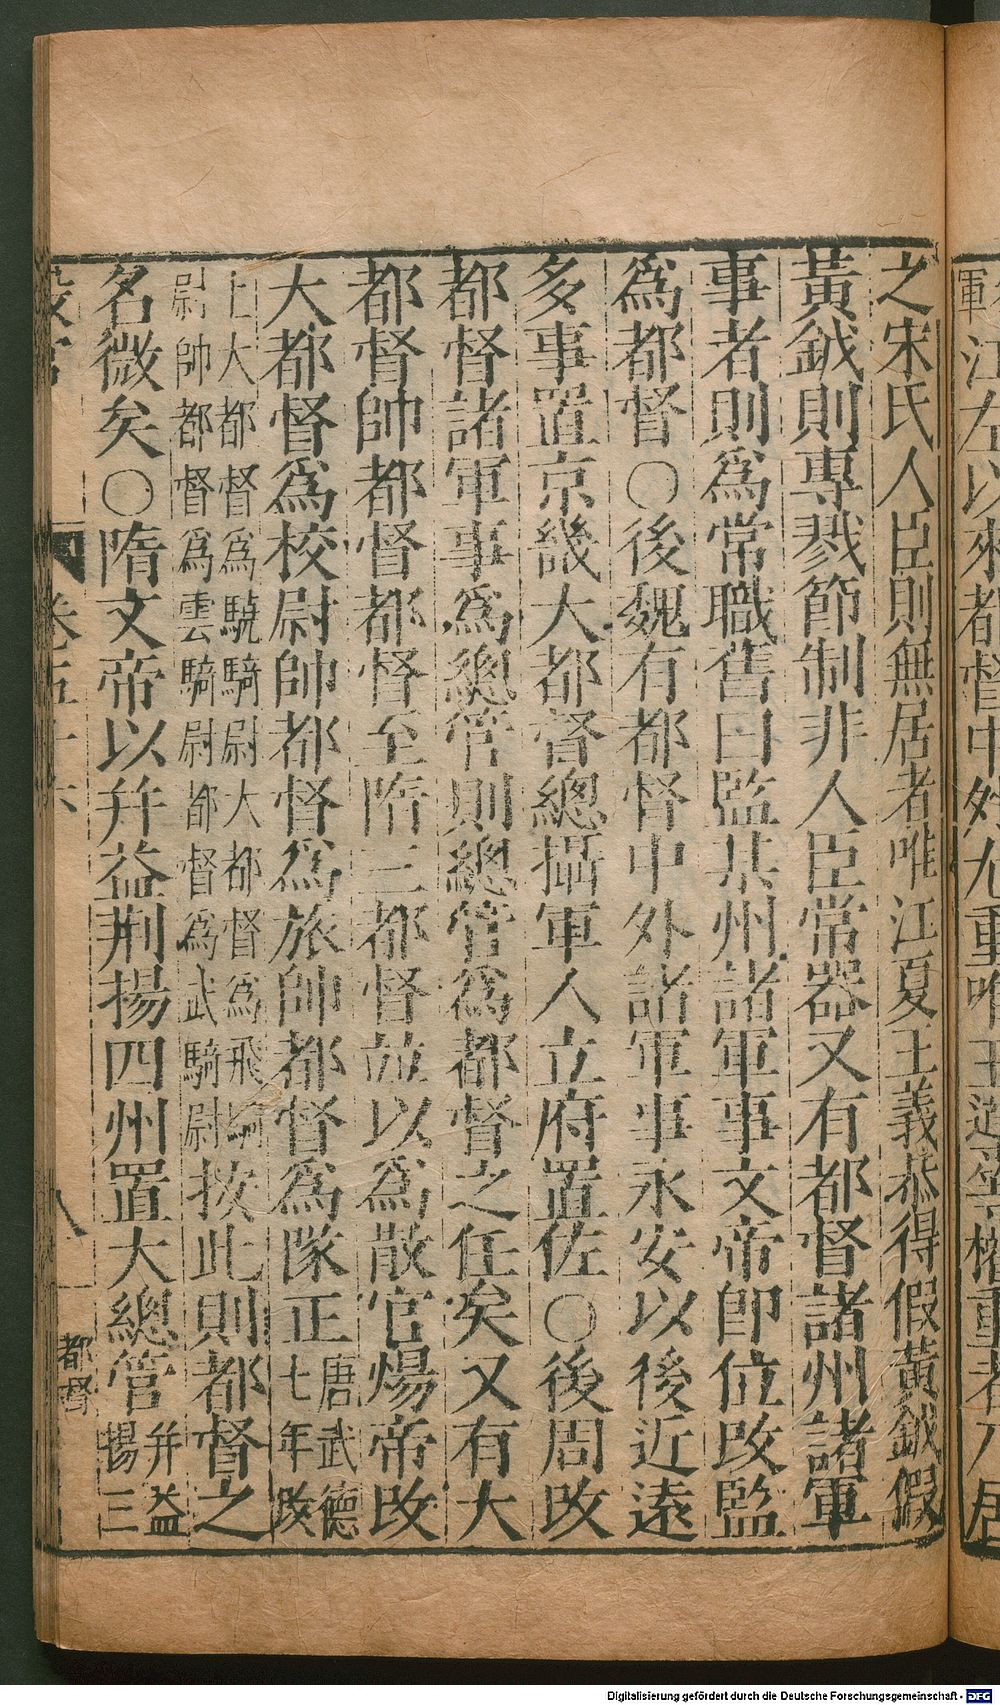 之宋氏人臣則無居者唯江夏王義恭得假黃鉞假
黃鉞則專戮節制非人臣常器又有都督諸州諸軍
事者則爲常職舊曰監某州諸軍事文帝即位改監
爲都督○後魏有都督中外諸軍事永安以後近遠
多事置京畿大都督總攝軍人立府置佐○後周改
都督諸軍事爲總管則總管爲都督之任矣又有大
都督帥都督都督至隋三都督並以爲散官煬帝改
大都督爲校尉帥都督爲旅帥都督爲隊正唐武德七年改
上大都督爲驍騎尉大都督爲飛騎尉帥都督爲雲騎尉都督爲武騎尉按此則都督之
名微矣○隋文帝以并益荆揚四州置大總管并益揚三
八
都督
Digitalisierung gefördert durch die Deutsche Forschungsgemeinschaft - DFG